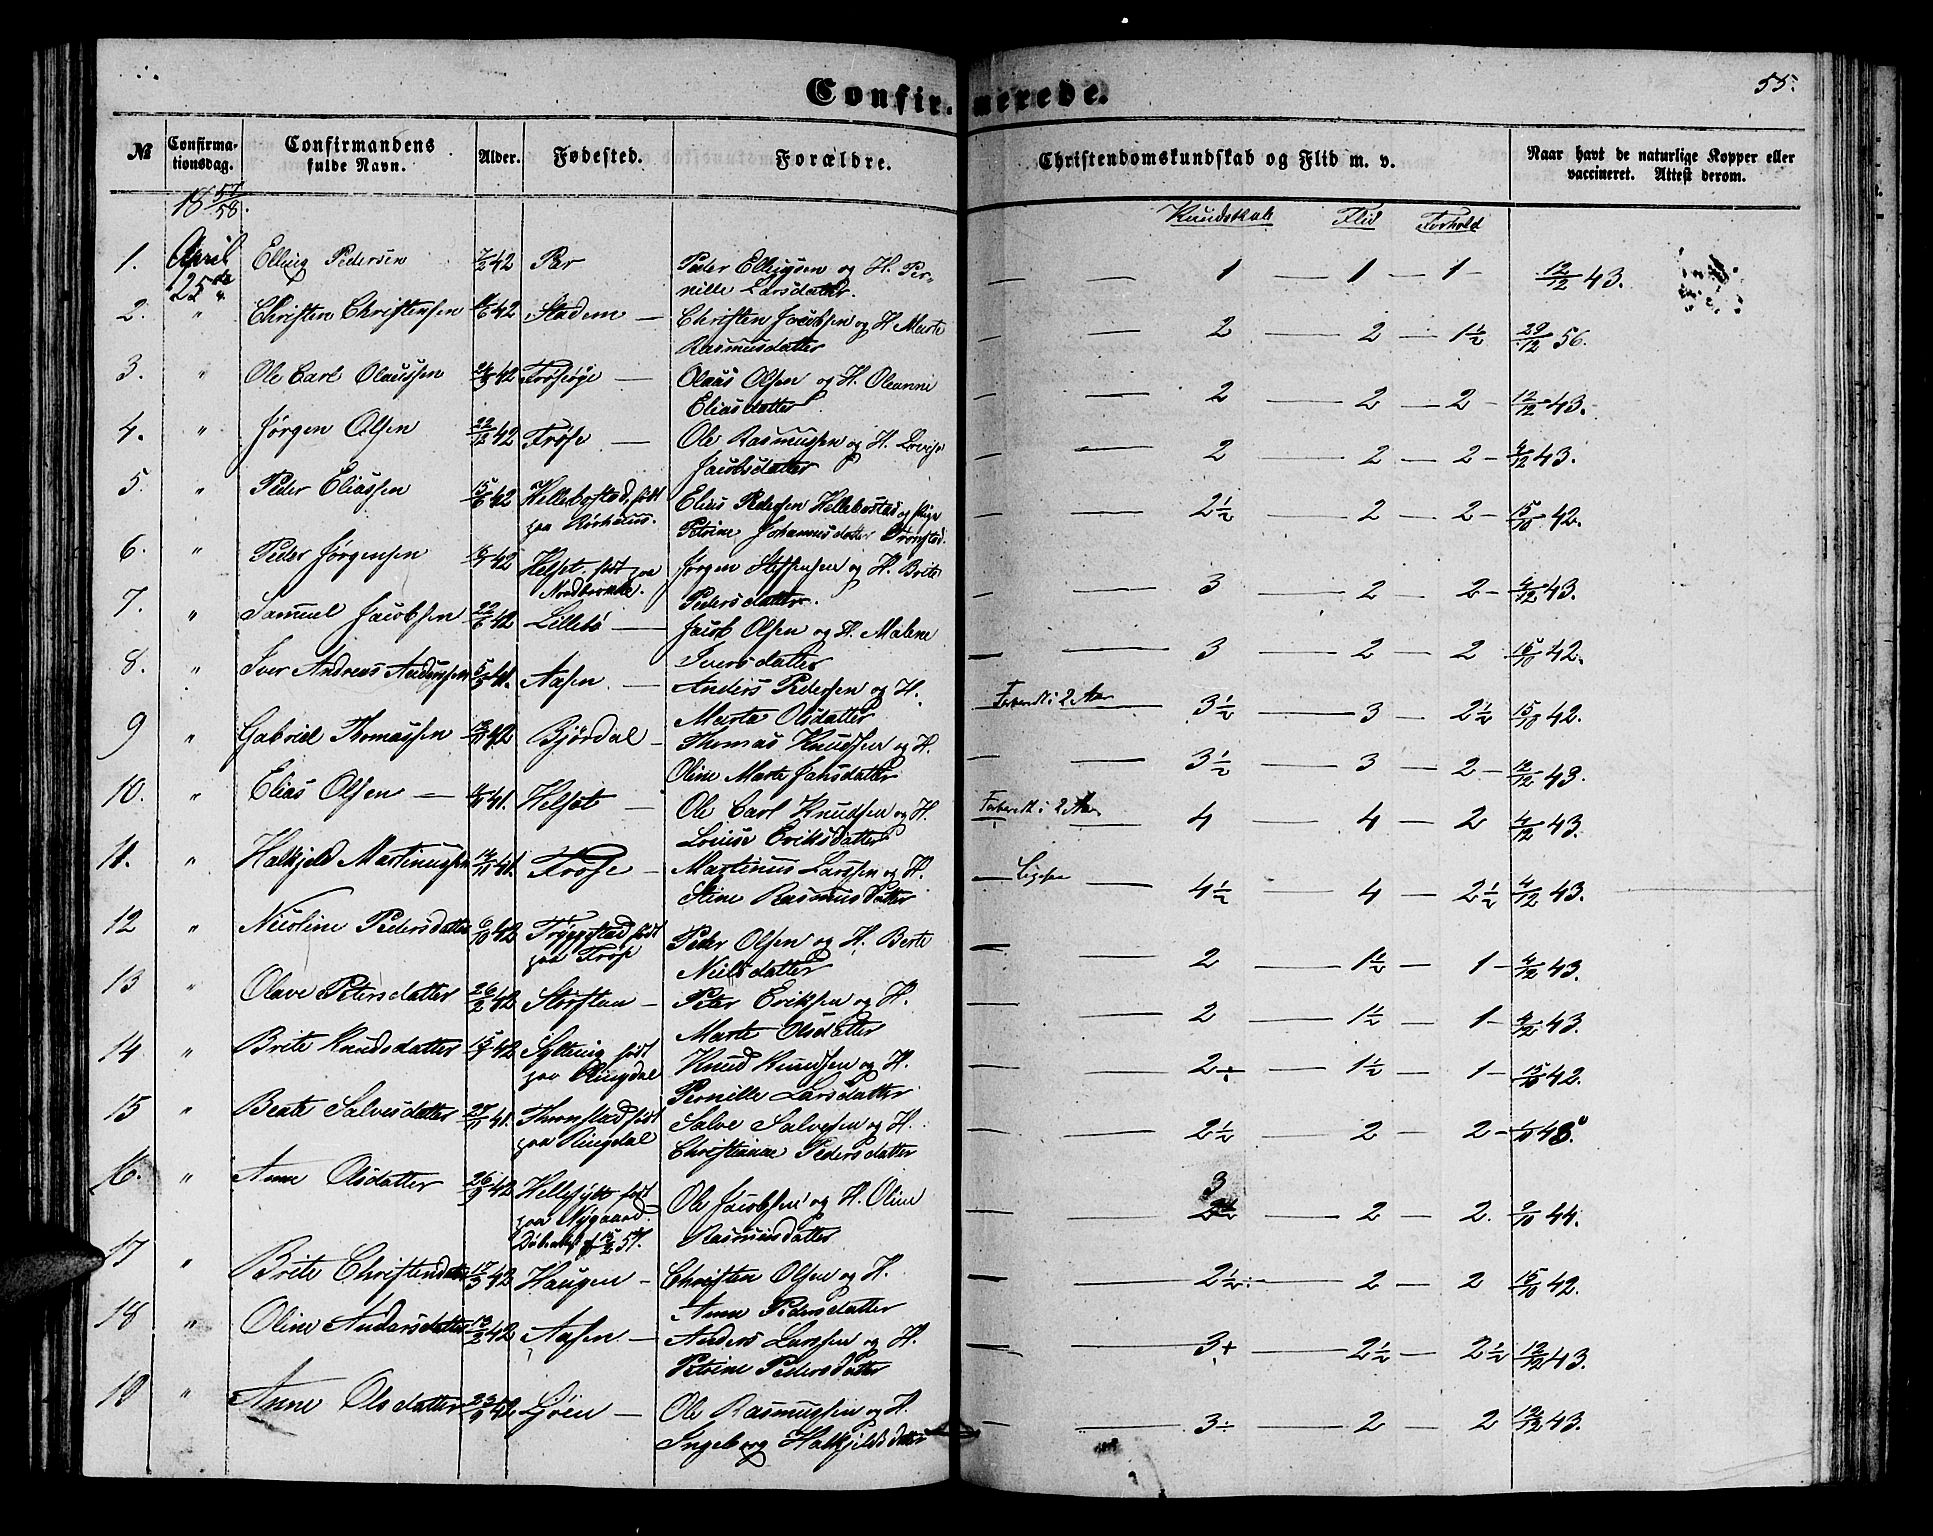 55.
Confirmerede.
No
Confirmationsdag.
Confirmandens fulde Navn.
Alder.
Fødested.
Forældre.
Christendomskundskab og Flid m. v.
Naar havt de naturlige Kopper eller vaccineret. Attest derom.
18 57/58.
Kundskab Flid Forhold
1. April 25de Elling Pedersen 7/2 42 Per Peter Ellingsen og H. Pernille Larsdatter. 1 1 1 12/12 43.
2. " Christen Christensen 42 Stadem Christen Jacobsen og H. Marte Rasmusdatter 2 2 1½ 29/12 56.
3. " Ole Carl Olaussen 42 Olaus Olsen og H. Oleanne Eliasdatter 2 2 2 12/12 43.
4. " Jørgen Olsen 22/12 42 Frøse Ole Rasmussen og H. Lovise Jacobsdatter 2 2 2 4/12 43.
5. " Peder Eliassen 42 Hellebostad, født paa Elias Pedersen Hellebostad og Pige Petrine Johannesdatter 2½ 2 2 15/10 42.
6. " Peder Jørgensen 42 Helset født paa Jørgen Steffensen og H. Brite Pedersdatter. 3 2 2 4/12 43.
7. " Samuel Jacobsen 22/6 42 Lillebø Jacob Olsen og H. Malene Iversdatter 3 2 2 15/10 42.
8. " Iver Andreas Andersen 41. Aasen Anders Pedersen og H. Marte Olsdatter Forberedt i 2 Aar 3½ 3 2½ 15/10 42.
9 " Gabriel Thomassen 42 Bjørdal Thomas Knudsen og H. Oline Marte Jansdatter 3½ 3 2 12/12 43.
10. " Elias Olsen 41. Helset Ole Carl Knudsen og H. Louise Eriksdatter Forberedt i 2 Aar 4 4 2 4/12 43.
11. " Halkjeld Martinussen 41. Frøse Martinus Larssen og H. Stine Rasmusdatter Ligesaa 4½ 4 2½ 4/12 43.
12 " Nicoline Pedersdatter 6/10 42 Tryggestad født paa Frøse Peder Olsen og H. Berte Nielsdatter 2 1½ 1 4/12 43.
13 " Olave Petersdatter 26/2 42 Storstau Peter Eriksen og H. Marte Olsdatter 2 1½ 1 4/12 43.
14 " Brite Knudsdatter 42 Sylteng født paa Ringdal Knud Knudsen og H. Pernille Larsdatter 2÷ 1½ 1 15/10 42.
15 " Beate Salvesdatter 41. Thronstad født paa Ringdal Salve Salvesen og H. Christianne Pedersdatter 2½ 2 2 43.
16. " Anne Olsdatter 26/9 42 Hellesylt født paa Nygaard. Ole Jacobsen og H. Oline Rasmusdatter 3 2 2. 9/10 44.
17 " Brite Christendatter 17/3 42 Haugen Christen Olsen og H. Anne Pedersdatter 2½ 2 2 15/10 42.
18 " Oline Andersdatter 13/2 42 Aasen Anders Larssen og H. Petrine Pedersdatter 3+ 2½ 2½ 12/12 43.
19 " Anne Olsdatter 42 Ljøen Ole Rasmussen og H. Ingeborg Halkjeldsdatter 3÷ 2 2 12/12 43.